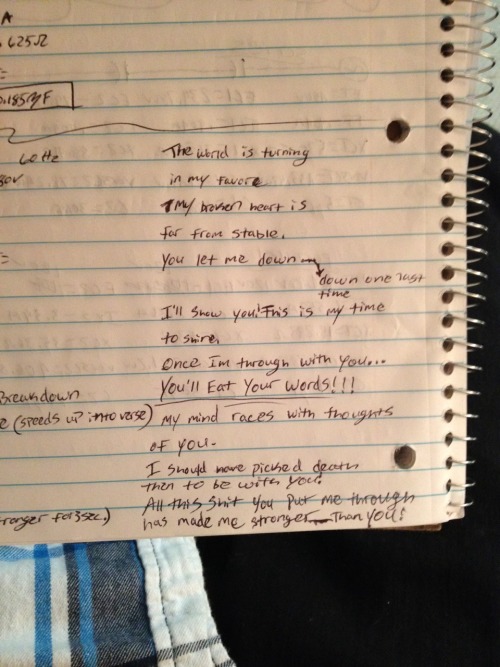 A
.625Ω
=
0.185mF
60Hz
80V
The world is turning
in my favore
My broken heart is
far from stable.
=
You let me down
down one last
time
I'll show you! This is my time
to shine.
Once Im through with you...
Breakdown
You'll Eat Your Words!!!
e (speeds up into verse)
my mind races with thoughts
of you.
I should have picked death
then to be with you.
All this shit you put me through
ronger for 3sec,)
has made me stronger Than you!